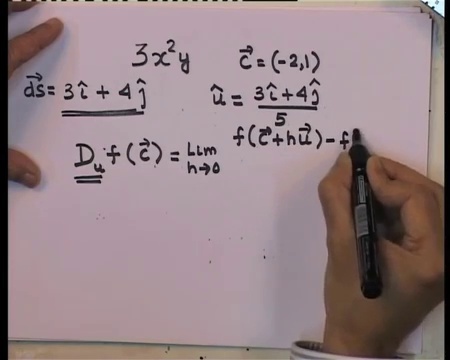 3x²y  c⃗ = (-2,1)
d⃗s = 3î + 4ĵ  û = (3î + 4ĵ)/5
D_u f(c⃗) = Lim h→0 f(c⃗+hu⃗) - f